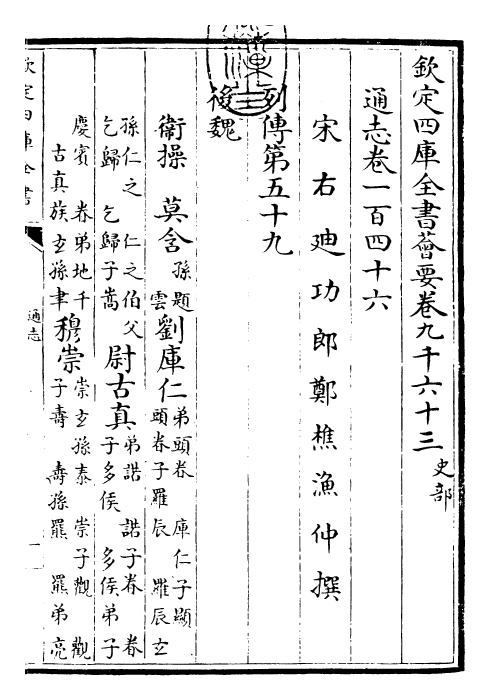 欽定四庫全書薈要卷九千六十三 史部
通志卷一百四十六
宋右迪功郎鄭樵漁仲撰
列傳第五十九
後魏
衛操 莫含 孫題 雲 劉庫仁 弟頭眷 庫仁子顯 頭眷子羅辰 羅辰玄
孫仁之 仁之伯父 乞歸 乞歸子嵩 尉古真 弟諾 諾子眷 眷 子多侯 多侯弟子
慶賓 眷弟地干 古真族玄孫聿 穆崇 崇玄孫泰 崇子觀 觀 子壽 壽孫羆 羆弟亮
欽定四庫全書
通志
一